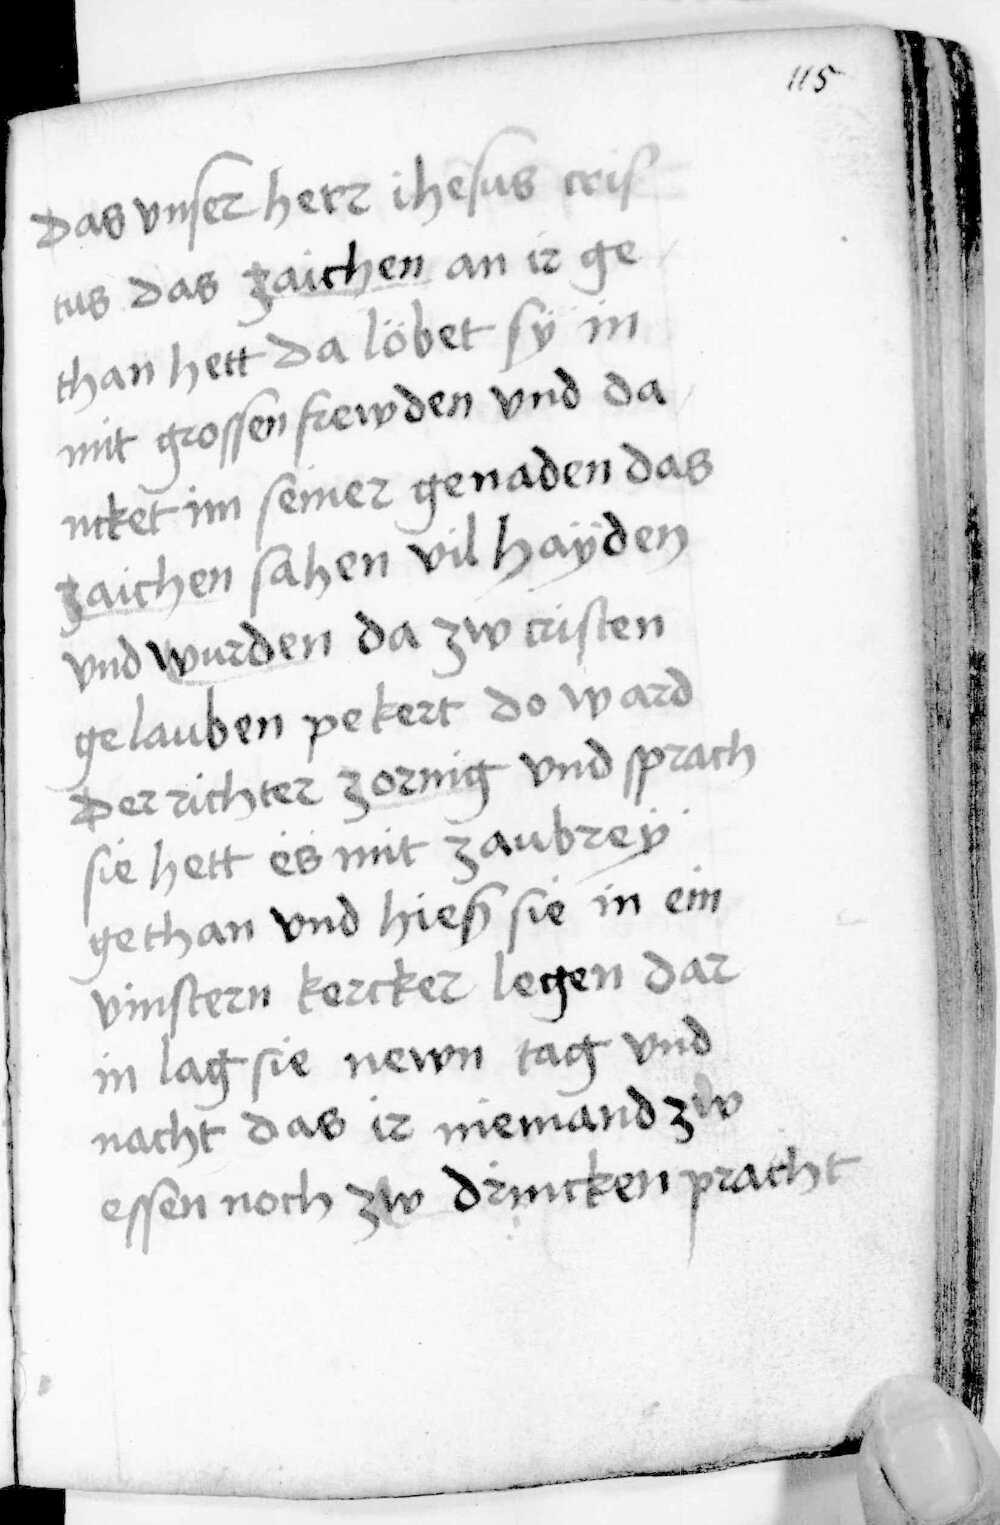 115
Das vnser herr ihesus cris
tus das zaichen an ir ge
than hett da löbet sÿ in
mit grossen frewden vnd da
ncket im seiner genaden das
zaichen sahen vil haÿden
vnd wurden da zw cristen
gelauben pekert do ward
Der richter zornig vnd sprach
sie hett es mit zaubreÿ
gethan vnd hieß sie in ein
vinstern kercker legen dar
in lag sie newn tag vnd
nacht das ir niemand zw
essen noch zw drincken pracht